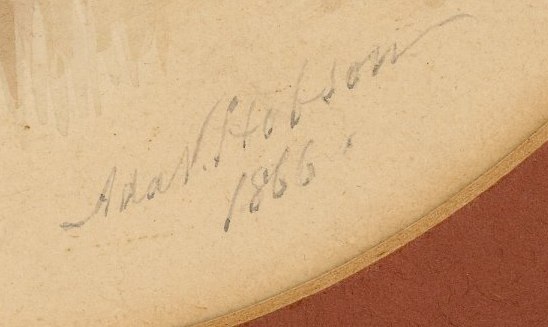 Ada V. Hobson
1866